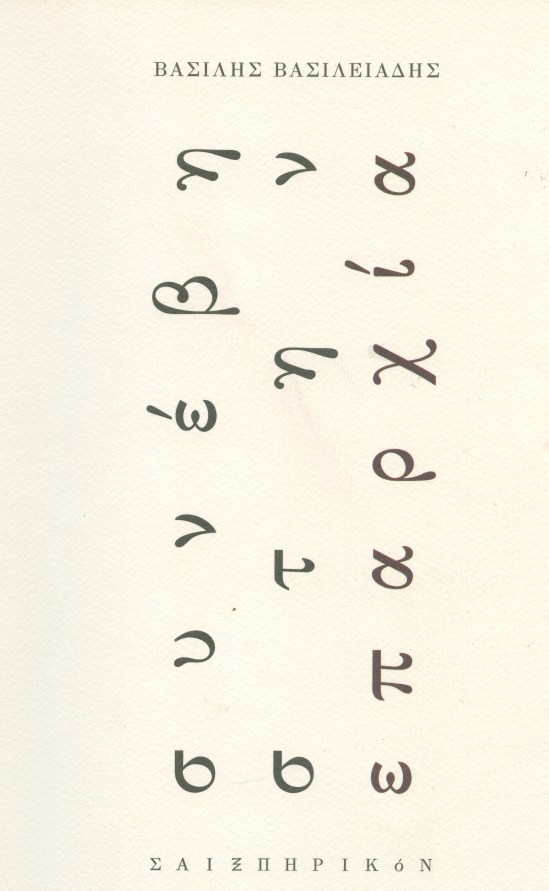 ΒΑΣΙΛΗΣ ΒΑΣΙΛΕΙΑΔΗΣ
συνέβη
στην
επαρχία
ΣΑΙΞΠΗΡΙΚόΝ